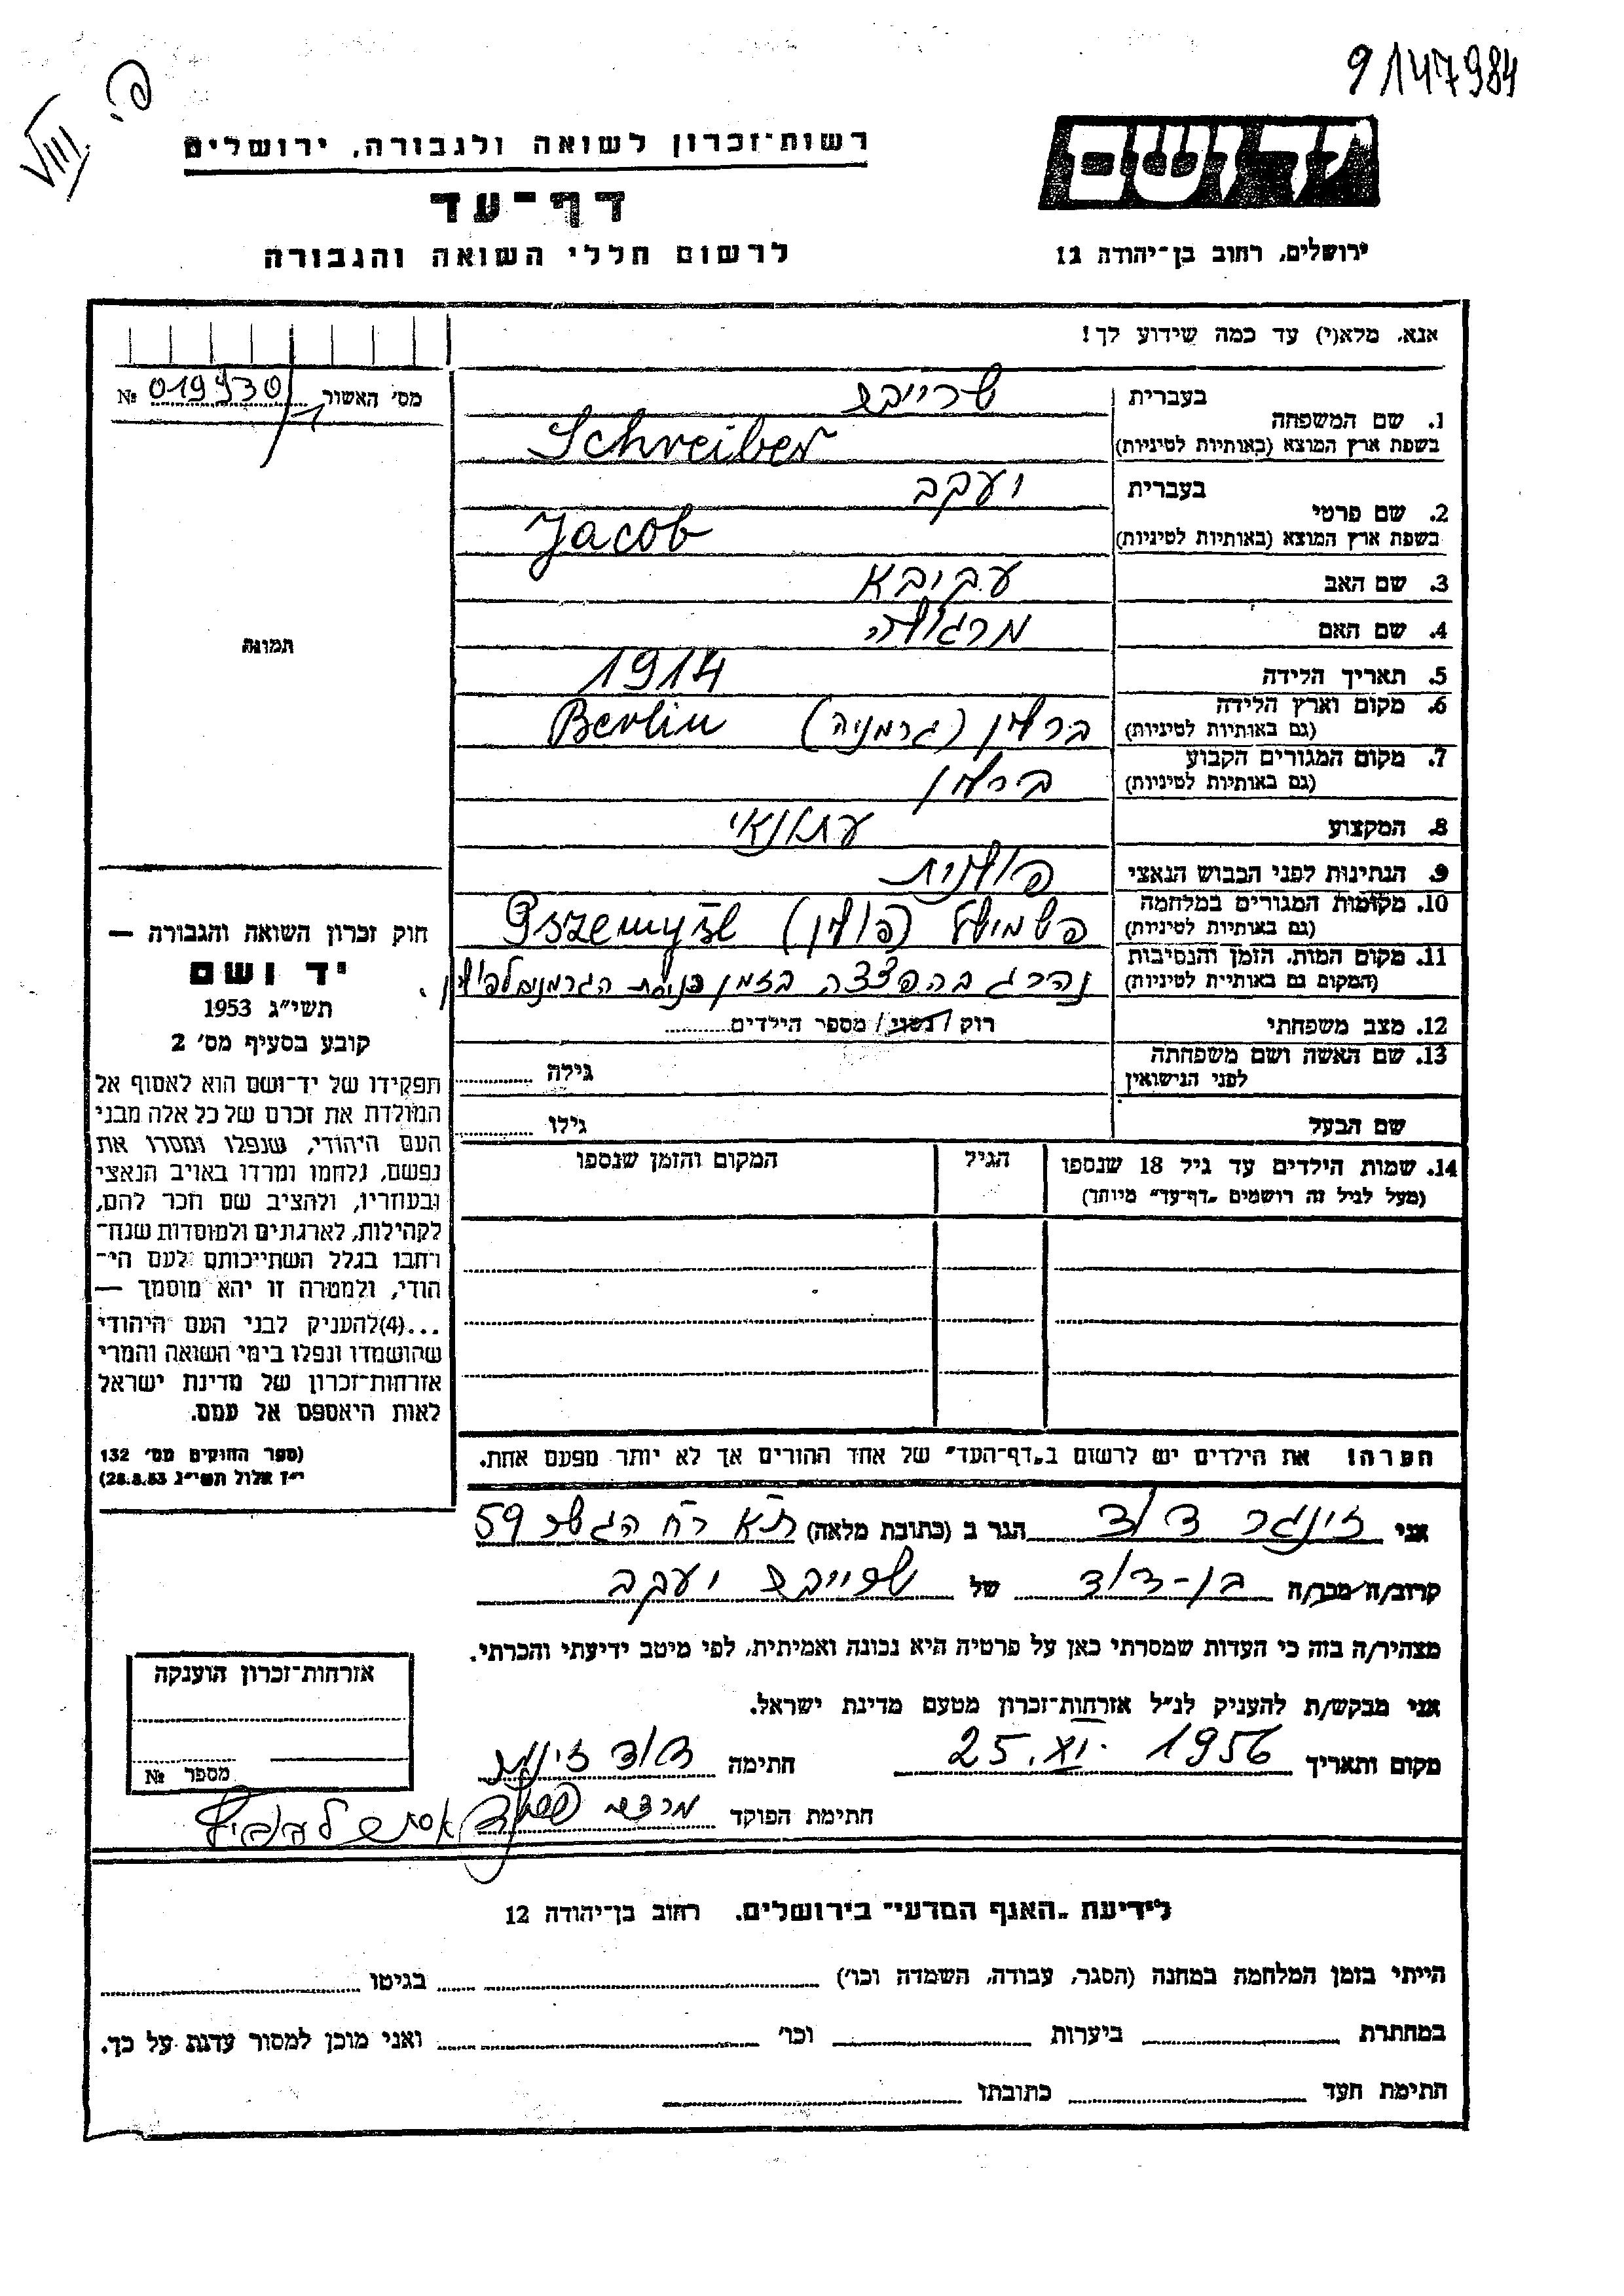 9147984
פ.
VIII
יד ושם
רשות־זכרון לשואה ולגבורה, ירושלים
דף־עד
לרשום חללי השואה והגבורה
ירושלים, רחוב בן־יהודה 12
אנא, מלא(י) עד כמה שידוע לך!
מס׳ האשור № 019930/1
תמונה
1. שם המשפחה
בעברית שרייבר
בשפת ארץ המוצא (באותיות לטיניות) Schreiber
2. שם פרטי
בעברית יעקב
בשפת ארץ המוצא (באותיות לטיניות) Jacob
3. שם האב עקיבא
4. שם האם מרגולה
5. תאריך הלידה 1914
6. מקום וארץ הלידה ברלין (גרמניה) Berlin
(גם באותיות לטיניות)
7. מקום המגורים הקבוע ברלין
(גם באותיות לטיניות)
8. המקצוע עתונאי
9. הנתינות לפני הכבוש הנאצי פולנית
10. מקומות המגורים במלחמה פשמישל (פולין) Pszemyśl
(גם באותיות לטיניות)
11. מקום המות, הזמן והנסיבות נהרג בהפצצה בזמן כניסת הגרמנים לפולין.
(המקום גם באותיית לטיניות)
12. מצב משפחתי רוק / נשוי / מספר הילדים
13. שם האשה ושם משפחתה גילה
לפני הנישואין
שם הבעל גילו
14. שמות הילדים עד גיל 18 שנספו הגיל המקום והזמן שנספו
(מעל לגיל זה רושמים „דף־עד״ מיוחד)
חוק זכרון השואה והגבורה —
יד ושם
תשי״ג 1953
קובע בסעיף מס׳ 2
תפקידו של יד־ושם הוא לאסוף אל
המולדת את זכרם של כל אלה מבני
העם היהודי, שנפלו ומסרו את
נפשם, נלחמו ומרדו באויב הנאצי
ובעוזריו, ולהציב שם וזכר להם,
לקהילות, לארגונים ולמוסדות שנח־
רבו בגלל השתייכותם לעם הי־
הודי, ולמטרה זו יהא מוסמך —
...(4)להעניק לבני העם היהודי
שהושמדו ונפלו בימי השואה והמרי
אזרחות־זכרון של מדינת ישראל
לאות היאספם אל עמם.
(ספר החוקים מס׳ 132
י״ז אלול תשי״ג 28.8.53)
הערה! את הילדים יש לרשום ב„דף־העד״ של אחד ההורים אך לא יותר מפעם אחת.
אני זינגר דוד הגר ב (כתובת מלאה) ת״א רח׳ הגשר 59
קרוב/ה מכר/ה בן-דוד של שרייבר יעקב
מצהיר/ה בזה כי העדות שמסרתי כאן על פרטיה היא נכונה ואמיתית, לפי מיטב ידיעתי והכרתי.
אני מבקש/ת להעניק לנ״ל אזרחות־זכרון מטעם מדינת ישראל.
מקום ותאריך 25.XI.1956 חתימה דוד זינגר
חתימת הפוקד
אזרחות־זכרון הוענקה
מספר №
לידיעת „האגף המדעי״ בירושלים, רחוב בן־יהודה 12
הייתי בזמן המלחמה במחנה (הסגר, עבודה, השמדה וכו׳) בגיטו
במחתרת ביערות וכו׳ ואני מוכן למסור עדות על כך.
חתימת העד כתובתו